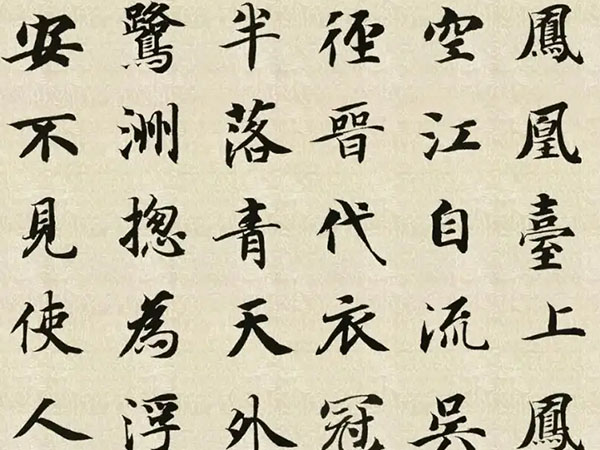 鳳凰臺上鳳
空江自流吳
徑晉代衣冠
半落青天外
鷺洲揔為浮
安不見使人